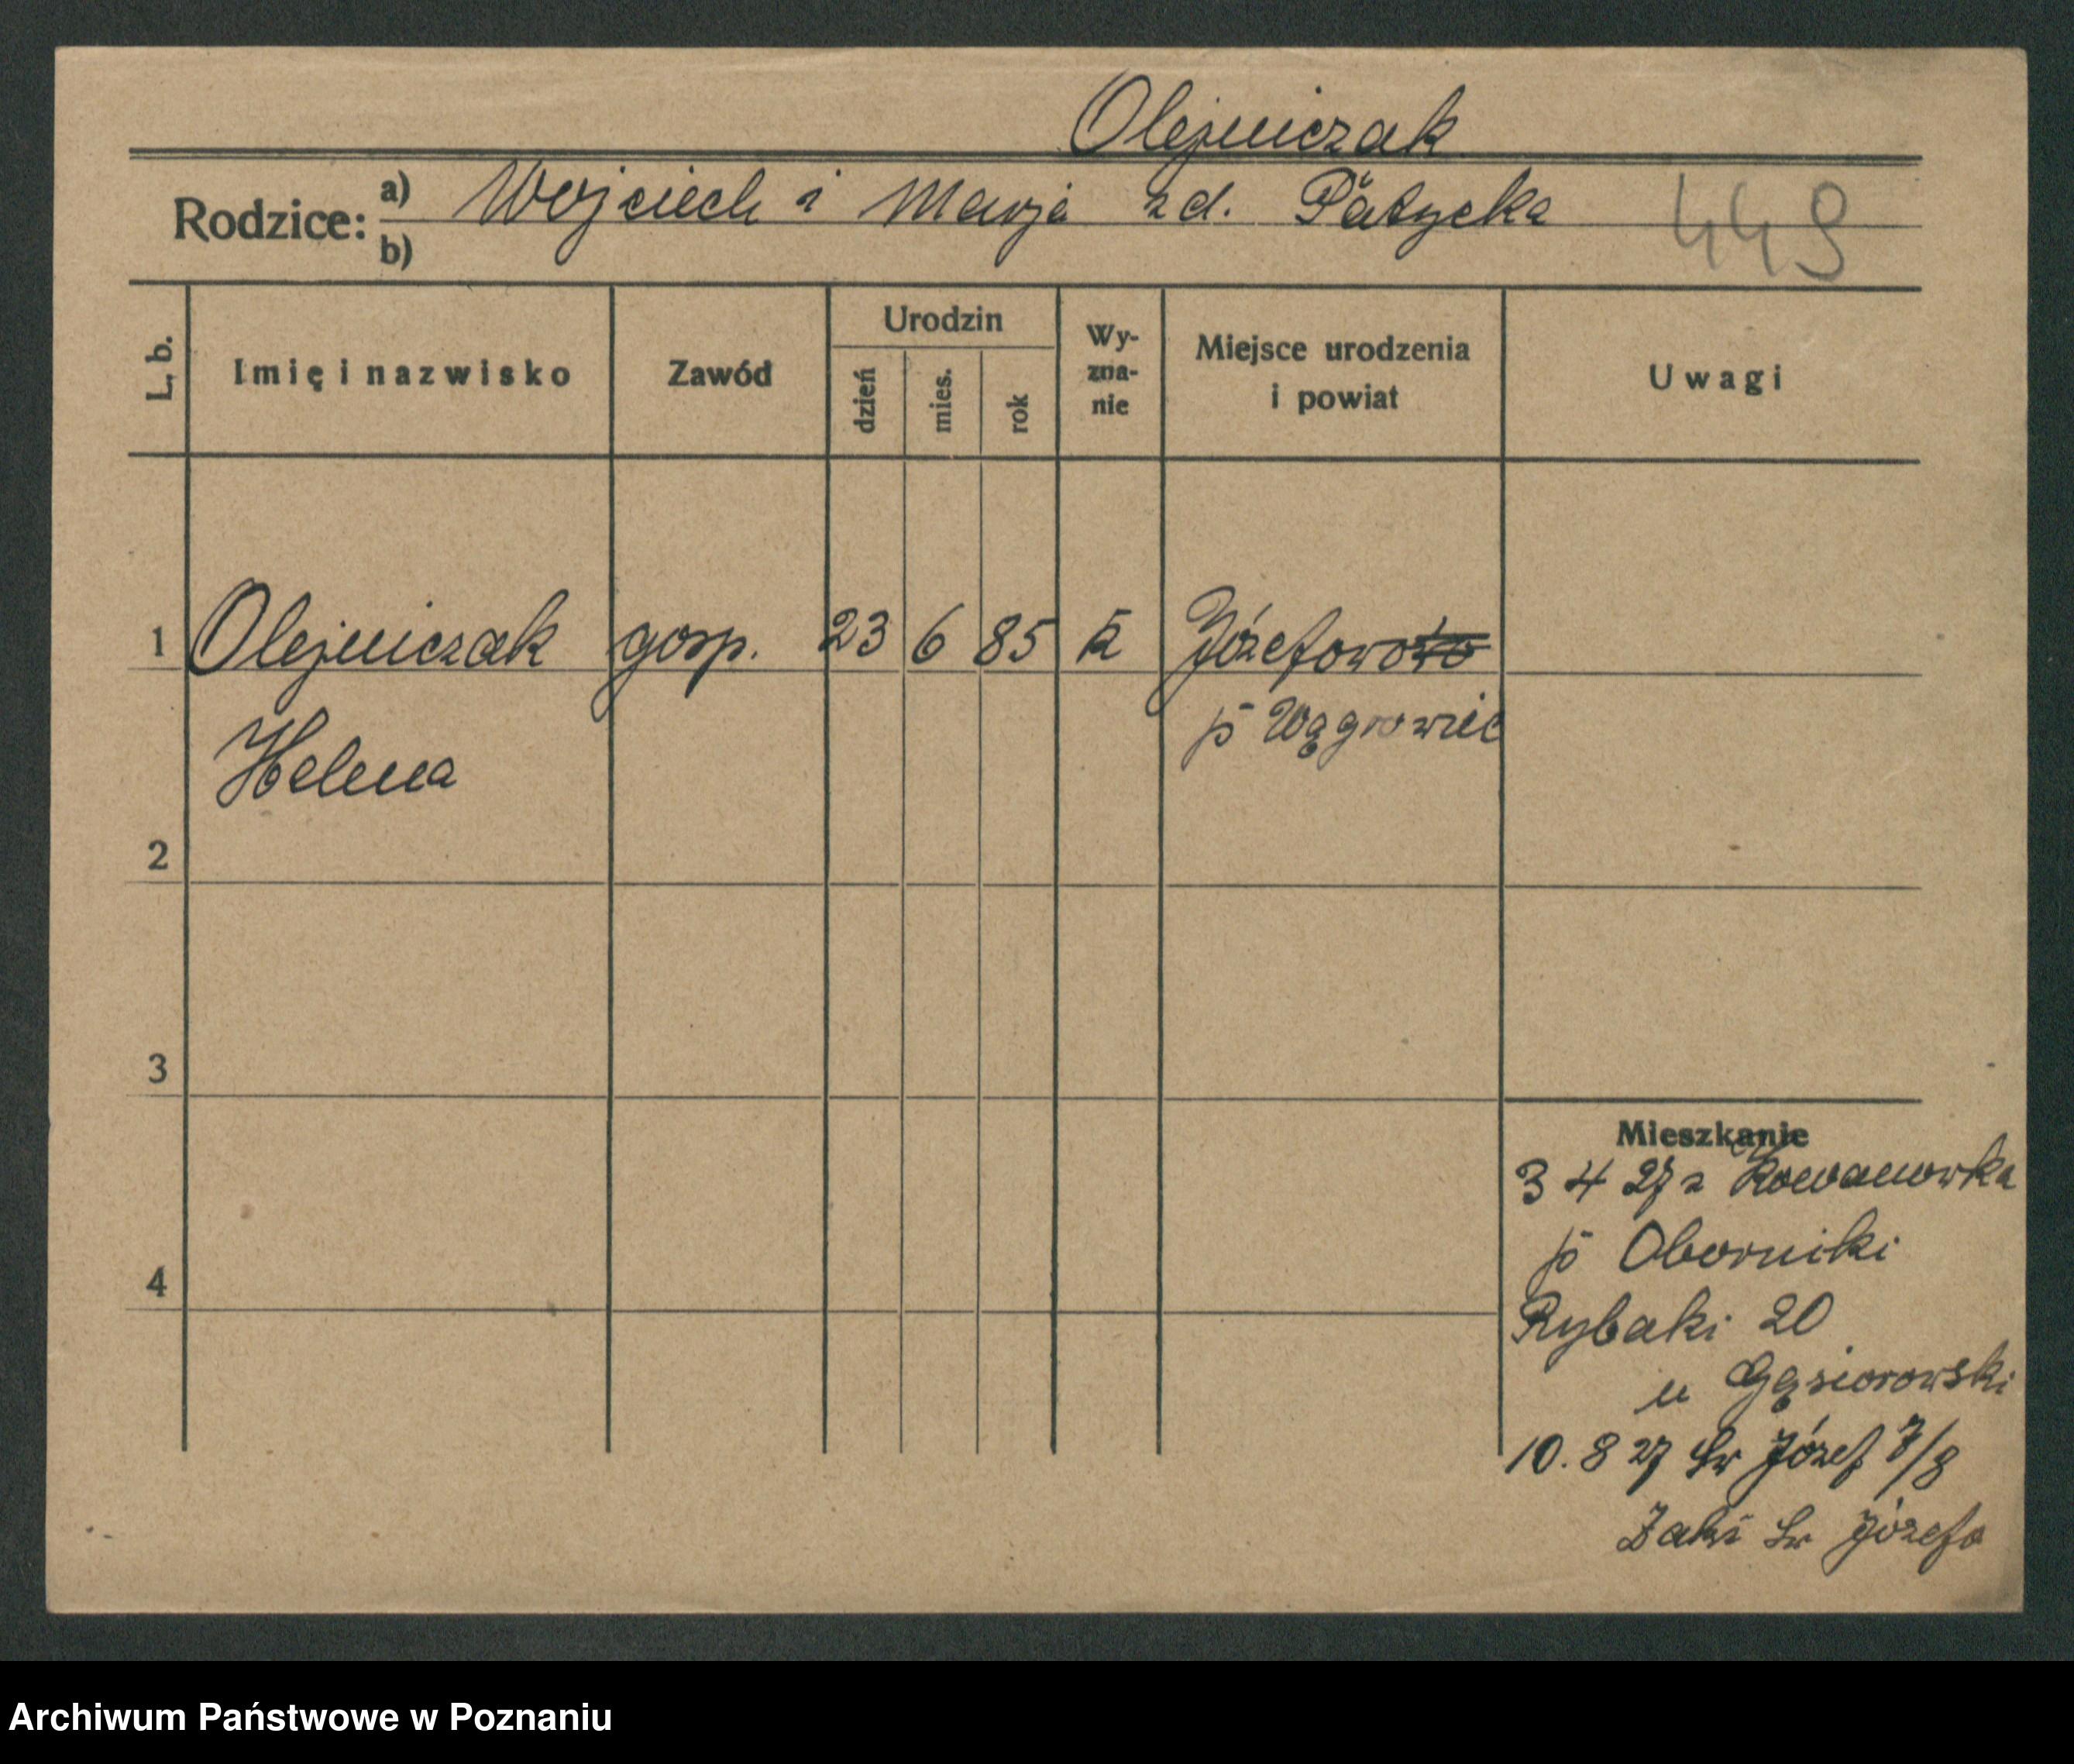 Olejniczak
Rodzice: a) Wojciech i Marja zd. Patycka
b)
449
L. b.
Imię i nazwisko
Zawód
Urodzin
dzień
mies.
rok
Wy-
zna-
nie
Miejsce urodzenia
i powiat
Uwagi
1 Olejniczak gosp. 23 6 85 k Józefowo
p Wągrowiec
Helena
2
3
4
Mieszkanie
3 4 27 z Rowanowka
p Oborniki
Rybaki 20
u Gąsiorowski
10. 8 27 Św Józef 7/8
Zakł Św Józefa
Archiwum Państwowe w Poznaniu